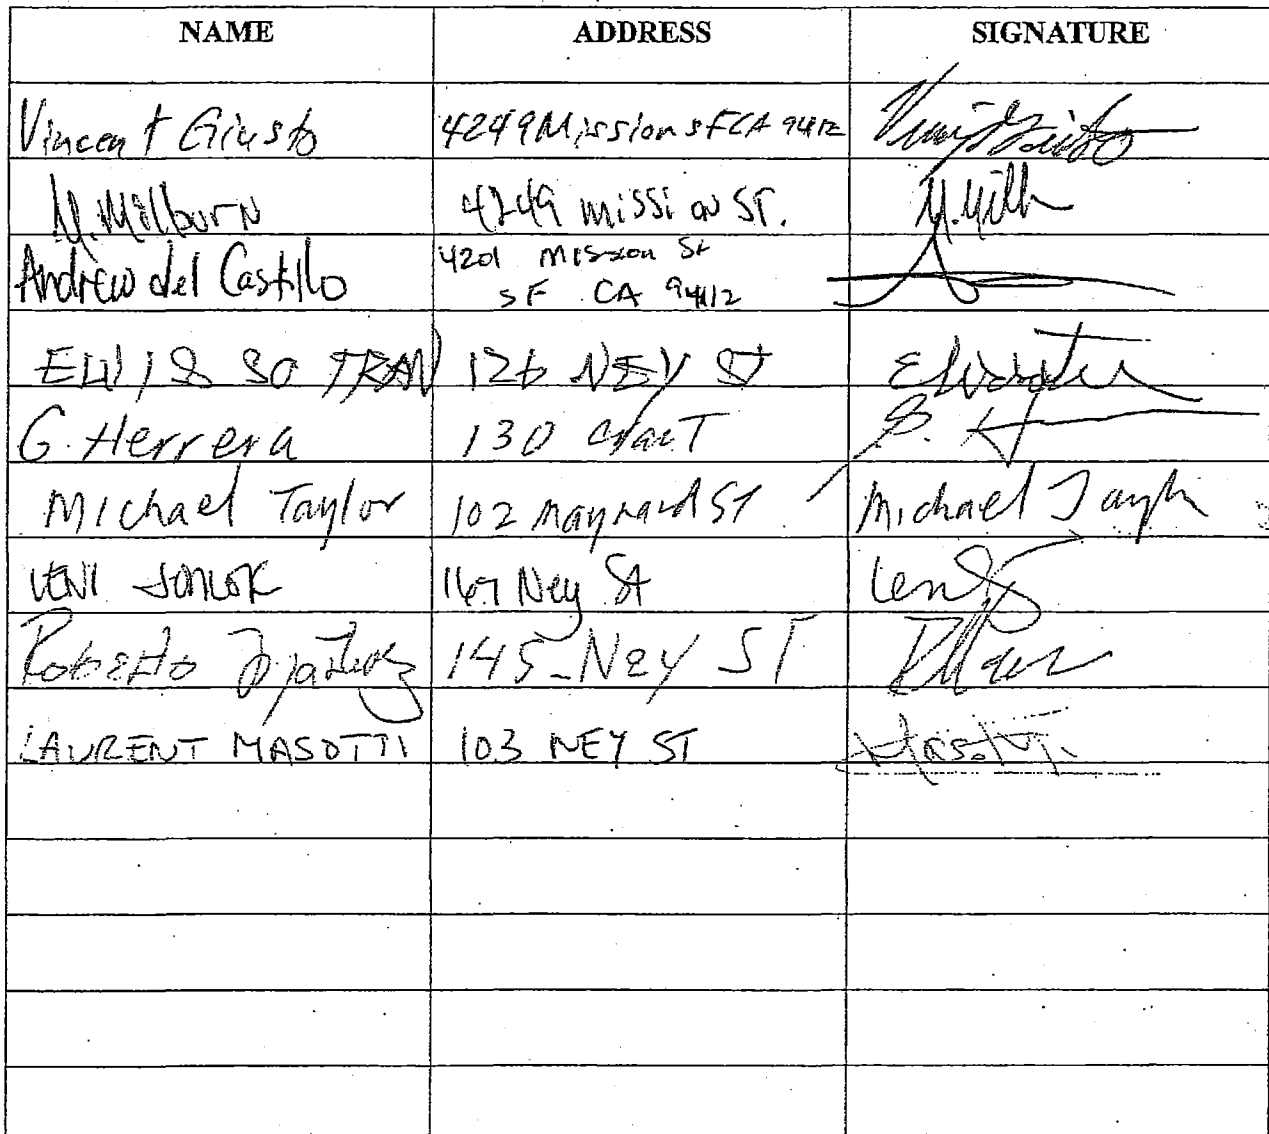 NAME ADDRESS SIGNATURE
Vincent Giusto 4249 Mission SF CA 94112
M. Milburn 4249 mission ST. M. Milb
Andrew del Castillo 4201 Mission St
SF CA 94112
TRAN 126 NEY ST
G. Herrera 130 G. H
Michael Taylor 102 Maynard ST Michael Taylor
LENI 167 Ney St Leni
Roberto 145 - NEY ST
LAURENT MASOTTI 103 NEY ST Masotti